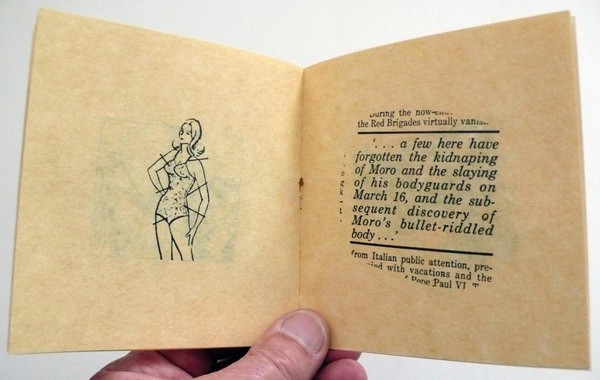 During the now-
the Red Brigades virtually
'. . . a few here have
forgotten the kidnaping
of Moro and the slaying
of his bodyguards on
March 16, and the sub-
sequent discovery of
Moro's bullet-riddled
body . . .'
from Italian public attention, pre-
with vacations and the
Pope Paul VI.